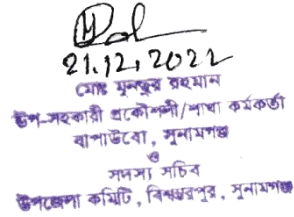 21.12.2022
মোঃ মনজুর রহমান
উপ-সহকারী প্রকৌশলী/শাখা কর্মকর্তা
বাপাউবো, সুনামগঞ্জ
ও
সদস্য সচিব
উপজেলা কমিটি, বিশ্বম্ভরপুর, সুনামগঞ্জ